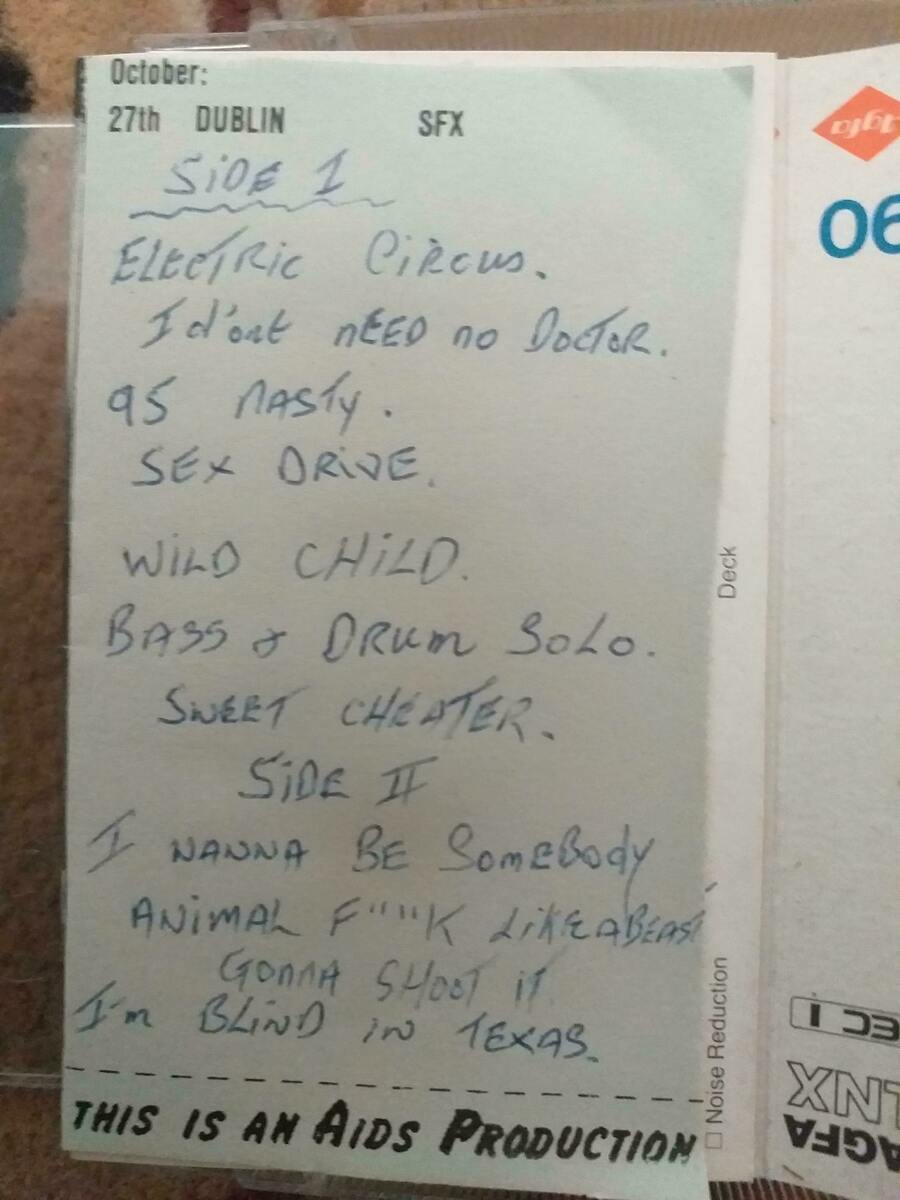 October:
27th DUBLIN SFX
SiDE 1
ELECTRiC CiRCUS.
I d'ont nEED no DOCTOR.
95 NASTY.
SEX DRIVE.
WiLD CHiLD.
BASS & DRUM SOLO.
SWEET CHEATER.
SiDE II
I WANNA BE SOMEBODY
ANiMAL F""K LiKE A BEAST
GONNA SHOOT IT
I'm BLiND iN TEXAS.
THIS IS AN AIDS PRODUCTION
Deck
Noise Reduction
Agfa
06
EC I
LNX
AGFA